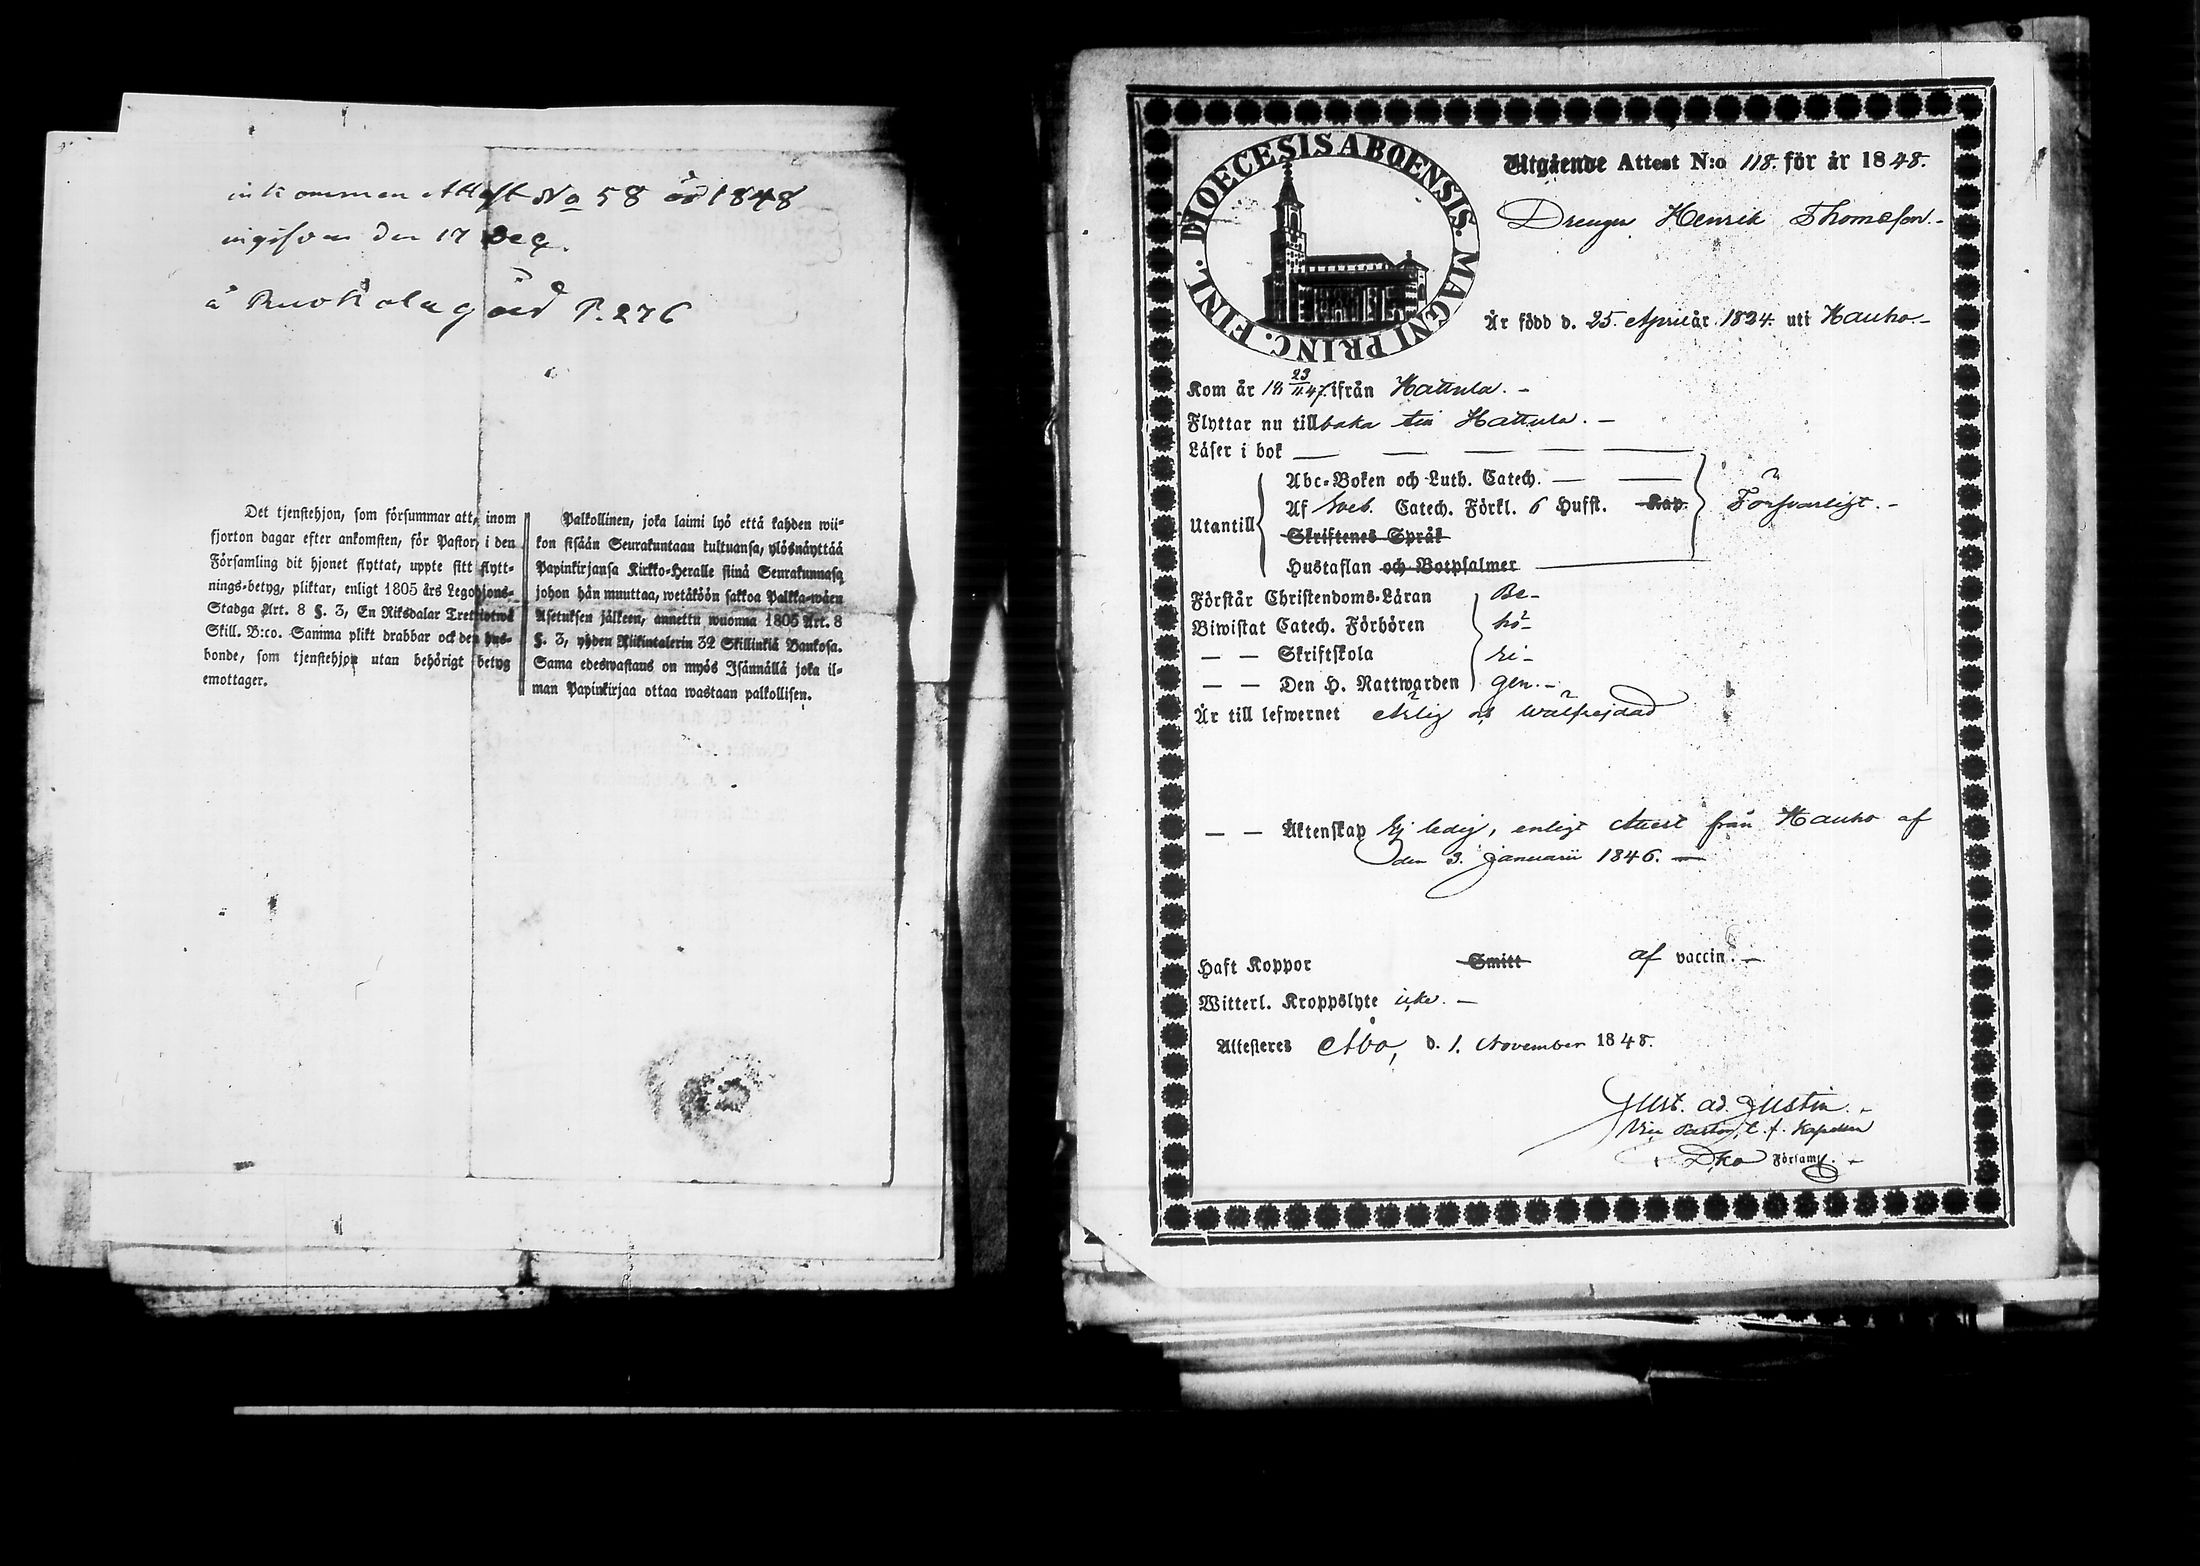 inkommen Attest No 58 år 1848
den 17 Dec.
å P. 276
Det tjenstehjon, som försummar att, inom
fjorton dagar efter ankomsten, för Pastor i den
Församling dit hjonet flyttat, uppte sitt flytt-
nings-betyg, pliktar, enligt 1805 års Legohjons-
Stadga Art. 8 §. 3, En Riksdalar Trettiotwå
Skill. B:co. Samma plikt drabbar ock den hus-
bonde, som tjenstehjon utan behörigt betyg
emottager.
Palkollinen, joka laimi lyö että kahden wii-
kon sisään Seurakuntaan tultuansa, ylösnäyttää
Papinkirjansa Kirkko-Heralle siinä Seurakunnasa
johon hän muuttaa, wetäköön sakkoa Palkka-wäen
Asetuksen jälkeen, annettu wuonna 1805 Art. 8
§. 3, yhden Riikintalerin 32 Skillinkiä Bankosa.
Sama edeswastaus on myös Isännällä joka il-
man Papinkirjaa ottaa wastaan palkollisen.
DIOECESIS ABOENSIS. MAGNI PRINC. FINL.
Utgående Attest N:o 118. för år 1848.
Drengen Henrik Thomasson.-
Är född d. 25. April år 1824. uti Hauho.-
Kom år 18 23/11 47. ifrån Hattula. -
Flyttar nu tillbaka till Hattula. -
Läser i bok — — — — —
Utantill
Abc-Boken och Luth. Catech. — —
Af Sveb. Catech. Förkl. 6 Hufst. Kap.
Försvarligt. -
Skriftenes Språk
Hustaflan och Botpsalmer —
Förstår Christendoms-Läran Be-
Biwistat Catech. Förhören hö-
— — Skriftskola ri-
— — Den H. Nattwarden gen.-
Är till lefwernet Ärlig och wälfrejdad
— — Äktenskap Ej ledig, enligt Attest från Hauho af
den 3. Januarii 1846. —
Haft Koppor Smitt af vaccin. -
Witterl. Kroppslyte icke. -
Attesteres Åbo, d. 1. November 1848.
Gust. Ad. Justin. -
Vice Pastor, t. f. Kapellan
i Dko Församl. -